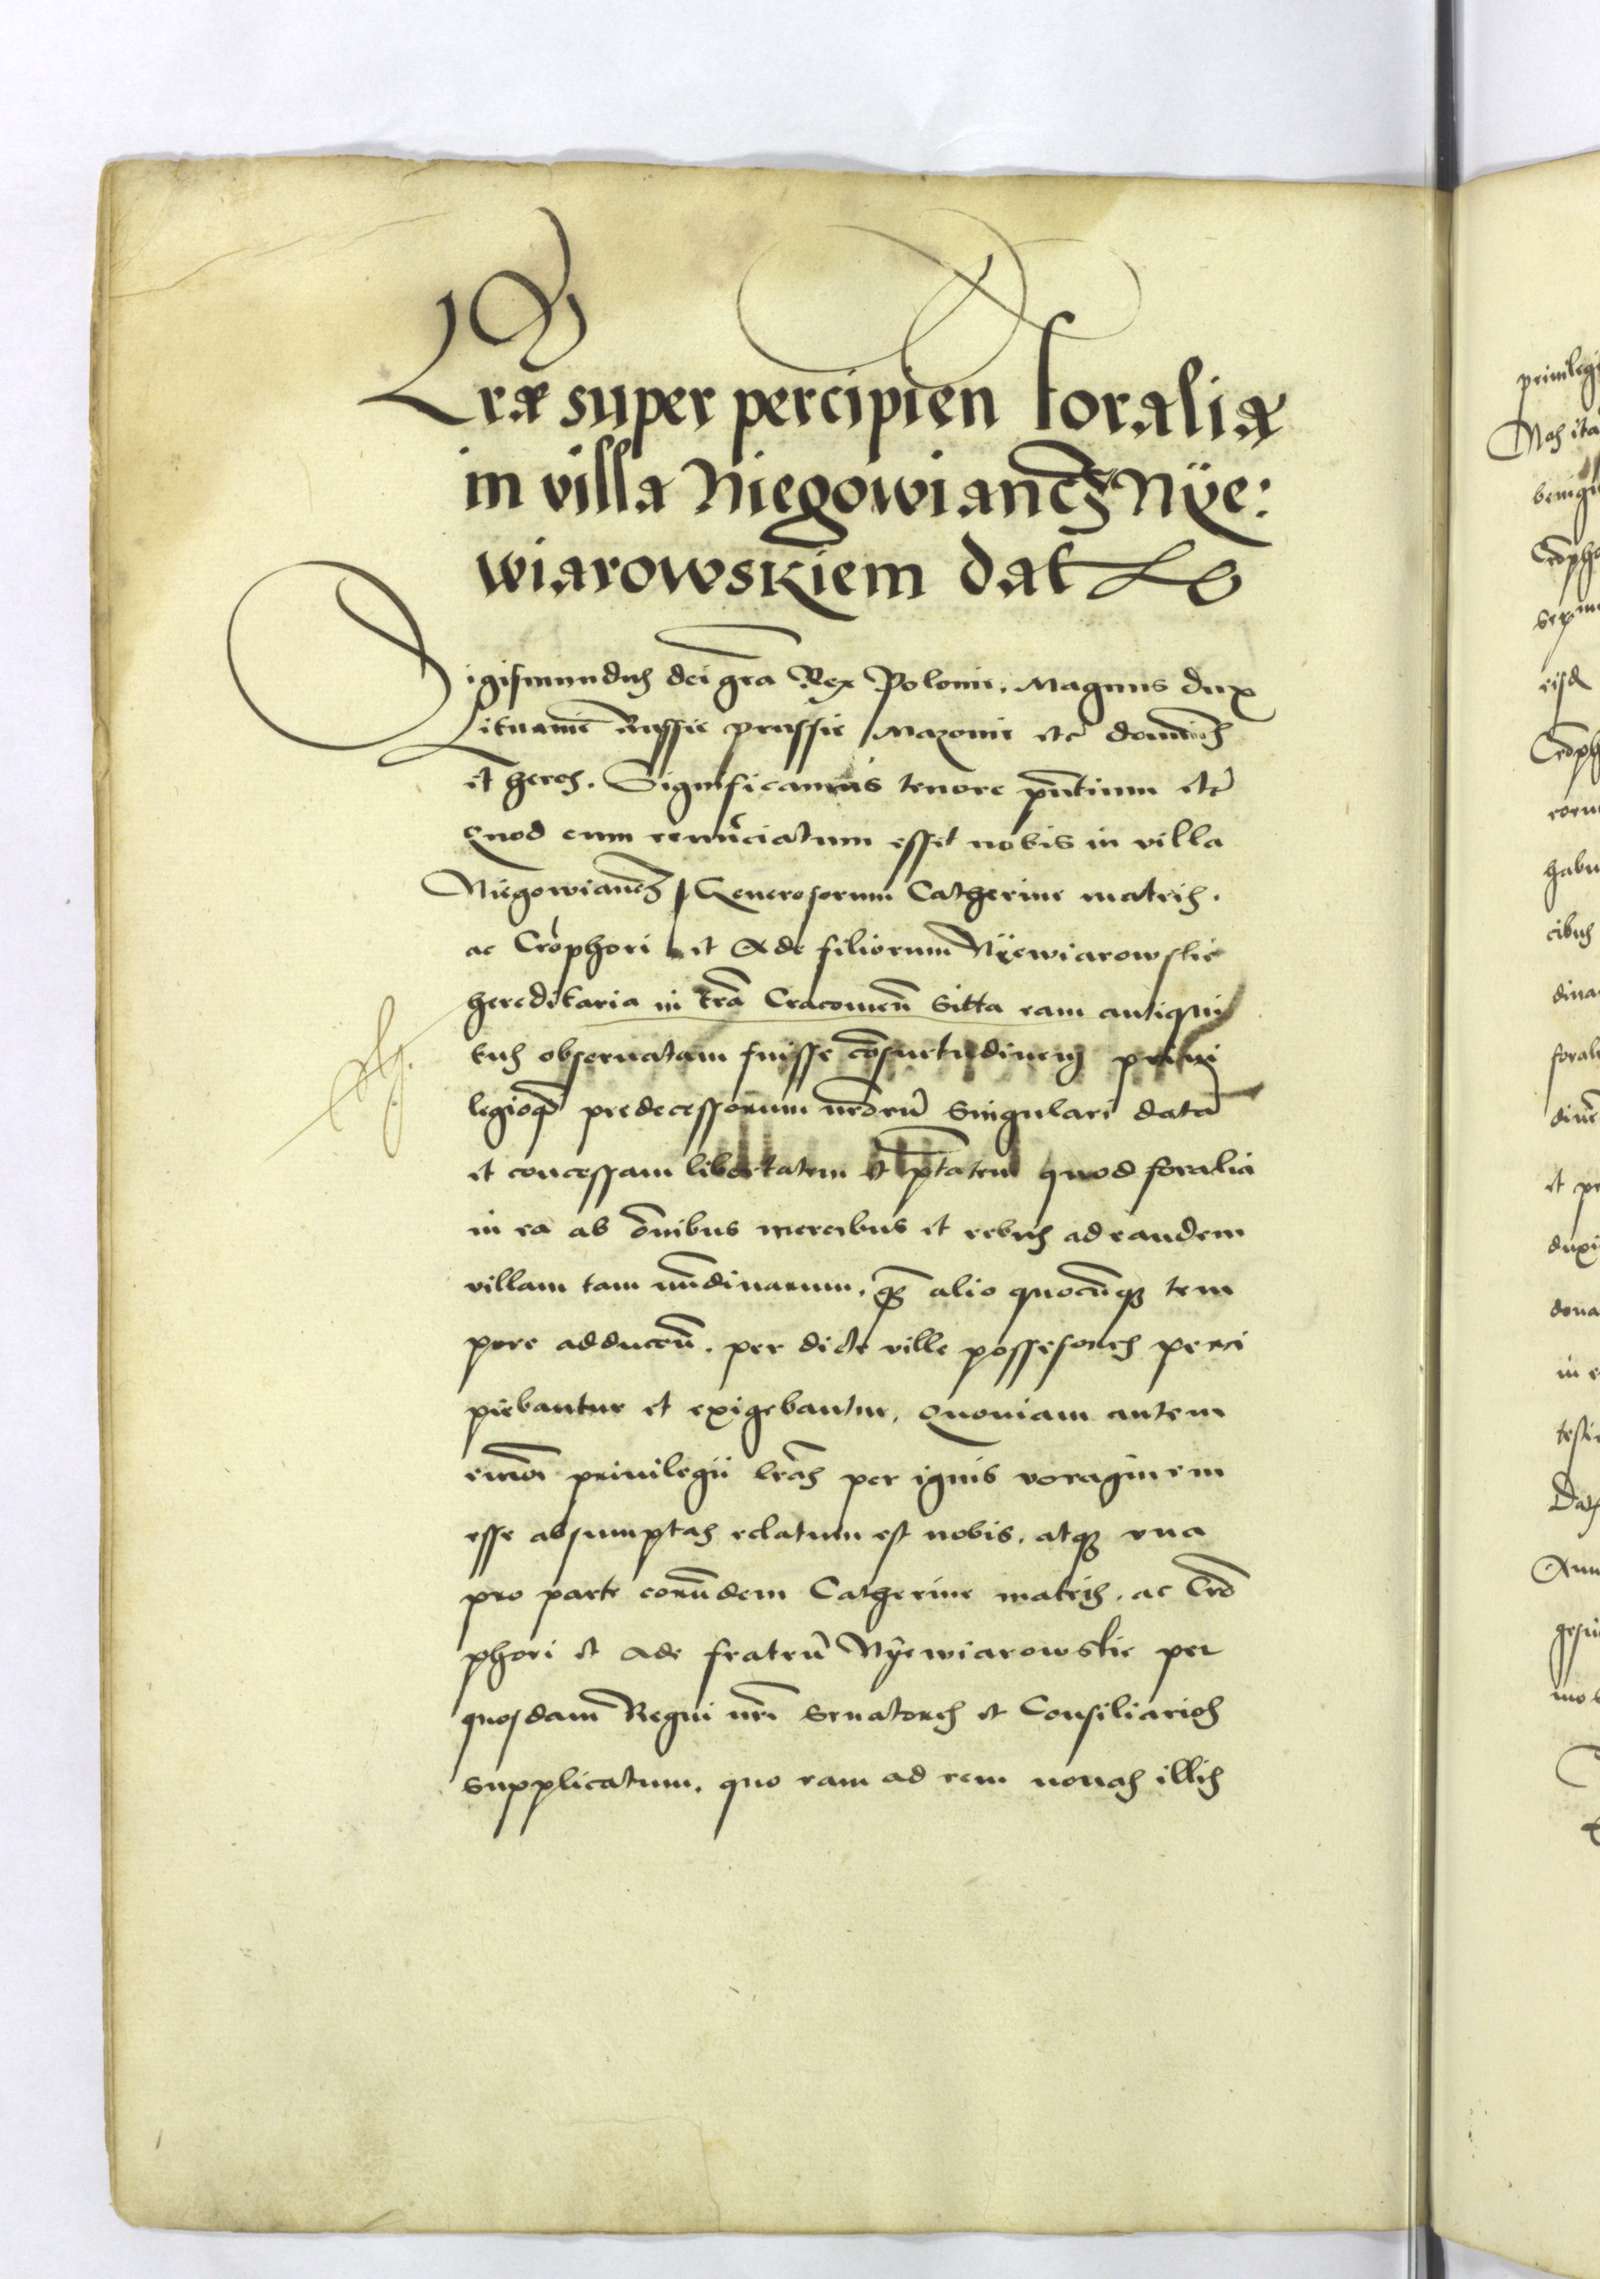 Lrae super percipien foralia
in villa Niegowianecz Nye:
wiarowskiem dat
Sigismundus dei gra Rex Polonie. Magnus dux
Lituanie Russie prussie Mazouie etc dominus
et heres. Significamus tenore pntium etc
Quod cum renunciatum esset nobis in villa
Niegowianecz Generosorum Catherine matris.
ac Crophori et Ade filiorum Nyewiarowskie
hereditaria in tra Cracouien sitta eam antiqui
tus obseruatam fuisse consuetudinem priui
legioque predecessorum nrorum singulari data
et concessam libertatem et ptatem quod foralia
in ea ab omnibus mercibus et rebus ad eandem
villam tam nundinarum. quam alio quocunque tem
pore adducen. per dicte ville possessores perci
piebantur et exigebantur. Quoniam autem
eiusmodi priuilegii lras per ignis voraginem
esse absumptas relatum est nobis. atque vna
pro parte eorundem Catherine matris. ac Cro
phori et Ade fratrum Nyewiarowskie per
quosdam Regni nri senatores et Consiliarios
supplicatum. quo eam ad rem nouas illis